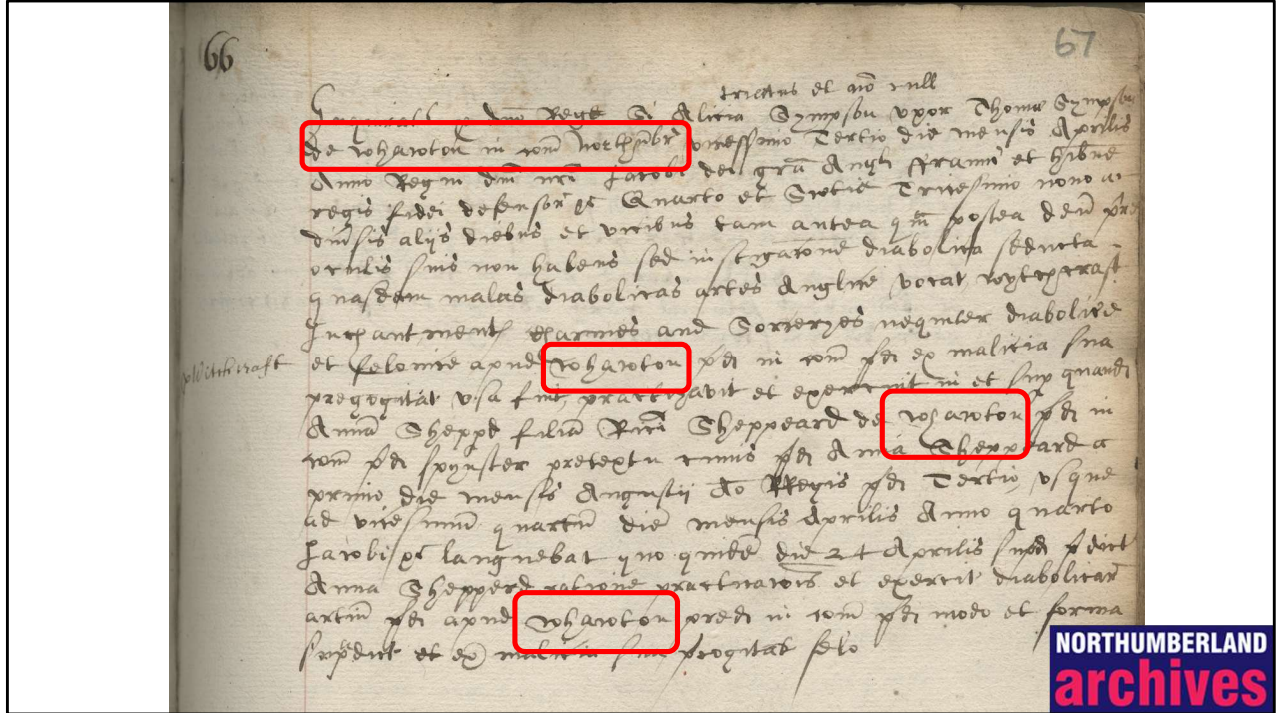 66
67
triatus et no null
Inquirat p dno Rege Si Alicia Sympson vxor Thome Sympson
de Whawton in com Northumbr vicessimo Tertio die mensis Aprilis
Anno Regni dni nri Jacobi dei gra Angli ffranc et Hibne
regis fidei defensor &c Quarto et Scotie Tricesimo nono ac
diusis alijs diebus et vicibus tam antea qm postea deu pre
oculis suis non habens sed instigacone diabolica seducta
quasdam malas diabolicas artes Anglice vocat wytchcraft
Inchantments charmes and Sorceryes nequiter diabolice
Witchcraft
et felonice apud Whawton pdi in com pdi ex malicia sua
precogitat vsa fuit practizavit et exercuit in et sup quandi
Annā Sheppd filiā Rici Sheppeard de Whawton pdi in
com pdi spynster pretextu cuius pdi Anna Sheppeard a
primo die mensis Augustij Ao RRegis pdi Tertio vsque
ad vicesimum quartū die mensis Aprilis Anno quarto
Jacobi &c languebat quo quidē die 24 Aprilis supdi pdict
Anna Shepperd ratione practicacois et exercit diabolicar
artiū pdi apud Whawton predi in com pdi modo et forma
supdict et ex malicia sua precogitat felo
NORTHUMBERLAND
archives